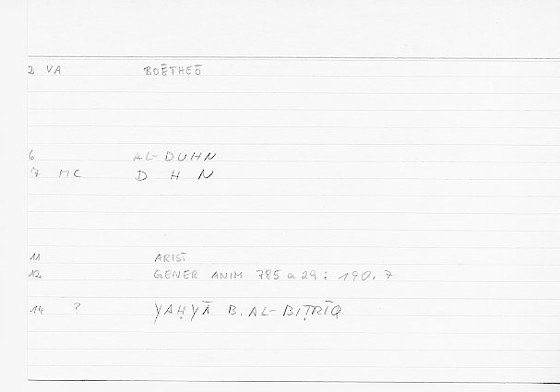 2 VA BOĒTHEŌ
6 AL-DUHN
7 MC D H N
11 ARIST
12 GENER ANIM 785 a 29 ; 190, 7
14 ? YAḤYĀ B. AL-BIṬRĪQ